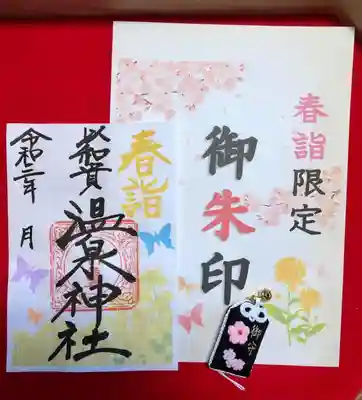 春詣限定
御朱印
春詣
敷賀
温泉神社
令和二年 月
御守